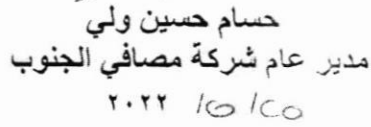 حسام حسين ولي
مدير عام شركة مصافي الجنوب
٢٠٢٢ /٥ /٢٥